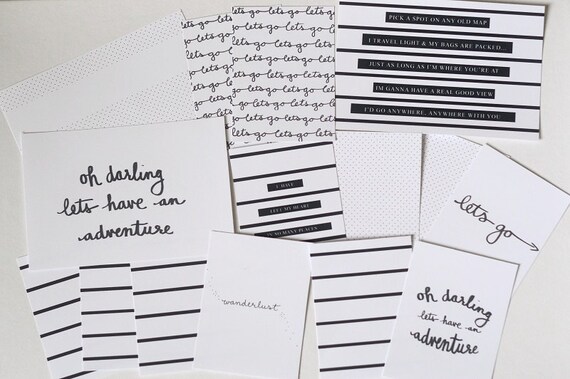 lets go lets go lets
lets go lets go lets
lets go lets go lets
lets go lets go lets
lets go lets go lets
lets go lets go lets
lets go lets go lets
PICK A SPOT ON ANY OLD MAP
I TRAVEL LIGHT & MY BAGS ARE PACKED...
JUST AS LONG AS I'M WHERE YOU'RE AT
IM GANNA HAVE A REAL GOOD VIEW
I'D GO ANYWHERE, ANYWHERE WITH YOU
oh darling
lets have an
adventure
I HAVE
LEFT MY HEART
IN SO MANY PLACES
lets go
wanderlust
oh darling
lets have an
adventure